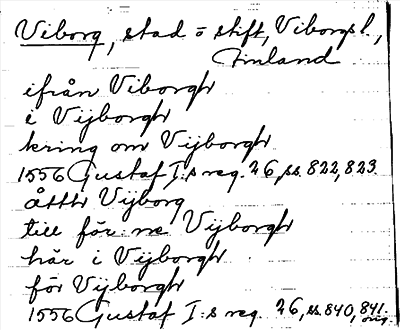 Viborg, stad o stift, Viborgs l.,
Finland
ifrån Viborgh
i Vijborgh
kring om Vijborgh
1556 Gustaf I:s reg. 26, ss. 822, 823.
åtth Vijborg
till för ne Vijborgh
här i Vijborgh
för Vijborgh
1556 Gustaf I:s reg. 26, ss. 840, 841.
orig.